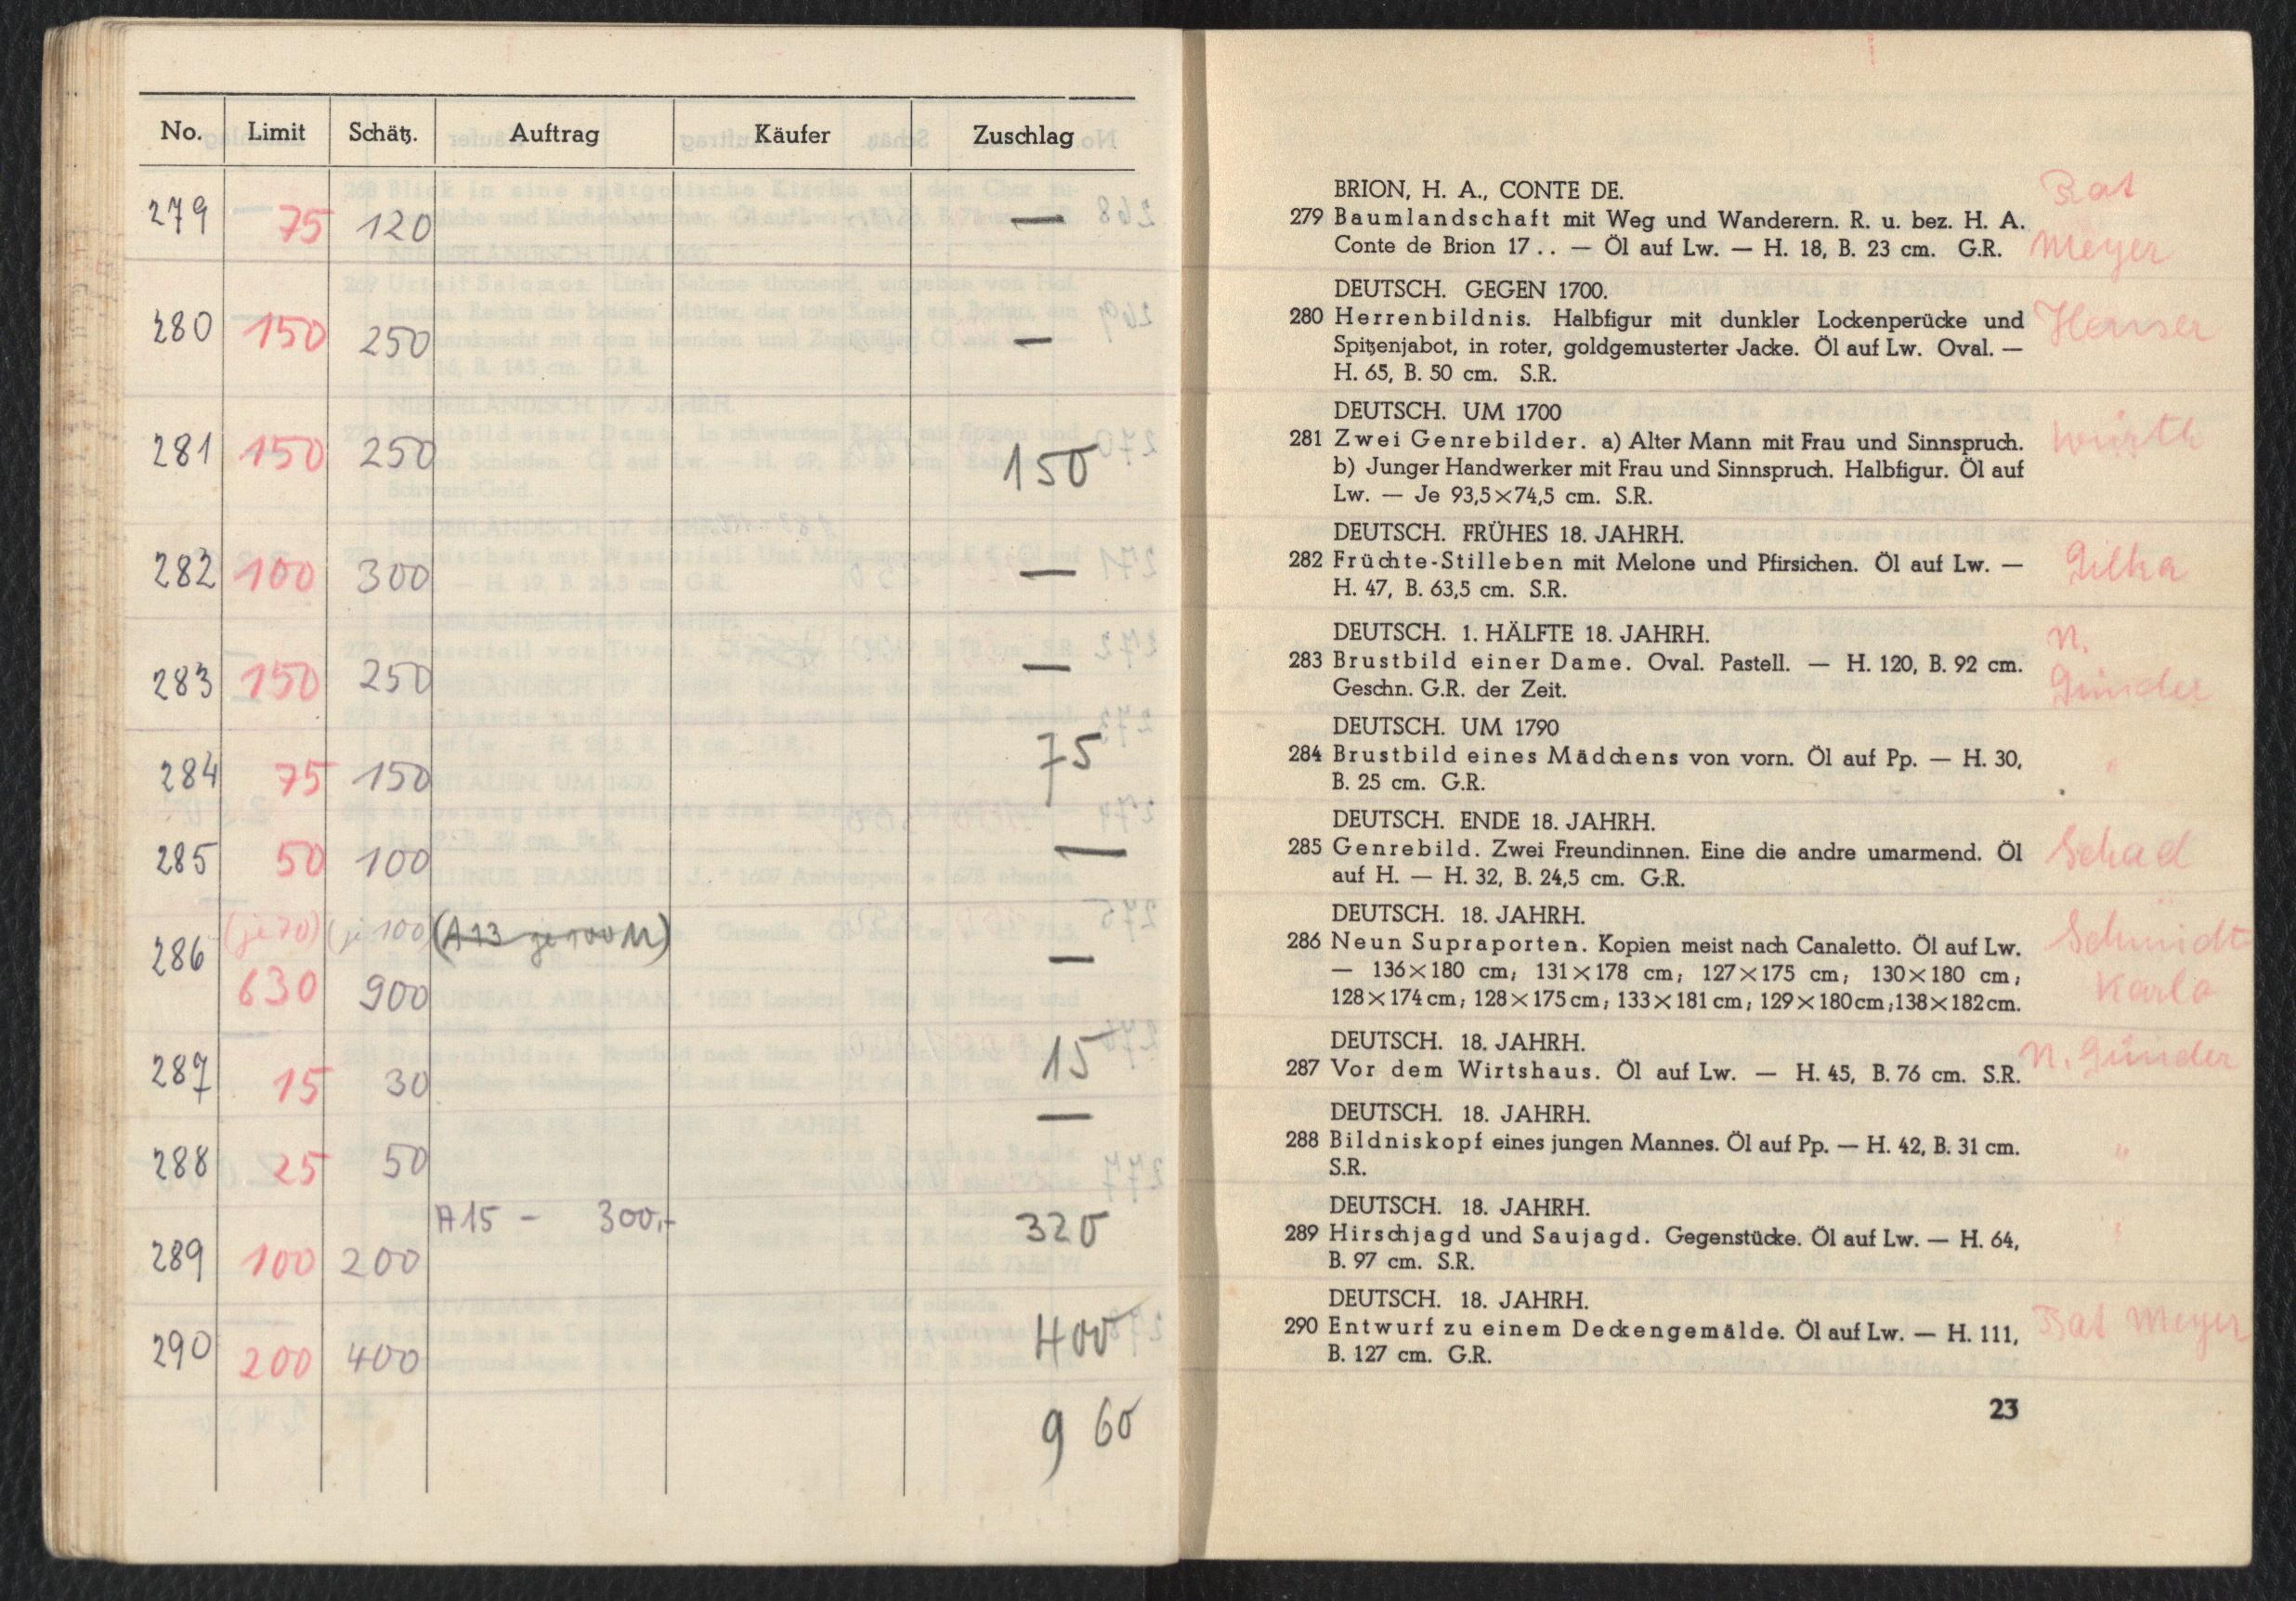 No. Limit Schätz. Auftrag Käufer Zuschlag
279 75 120 —
280 150 250 —
281 150 250 150
282 100 300 —
283 150 250 —
284 75 150 75
285 50 100 —
(je 70) (je 100 (A 13 je 100 M)
286 630 900 —
287 15 30 15
288 25 50 —
A 15 - 300,- 320
289 100 200
290 200 400 400
960
BRION, H. A., CONTE DE. Rat
279 Baumlandschaft mit Weg und Wanderern. R. u. bez. H. A.
Conte de Brion 17 . . — Öl auf Lw. — H. 18, B. 23 cm. G.R. Meyer
DEUTSCH. GEGEN 1700.
280 Herrenbildnis. Halbfigur mit dunkler Lockenperücke und
Spitzenjabot, in roter, goldgemusterter Jacke. Öl auf Lw. Oval. —
H. 65, B. 50 cm. S.R.
DEUTSCH. UM 1700
281 Zwei Genrebilder. a) Alter Mann mit Frau und Sinnspruch. Würth
b) Junger Handwerker mit Frau und Sinnspruch. Halbfigur. Öl auf
Lw. — Je 93,5×74,5 cm. S.R.
DEUTSCH. FRÜHES 18. JAHRH.
282 Früchte-Stilleben mit Melone und Pfirsichen. Öl auf Lw. —
H. 47, B. 63,5 cm. S.R.
DEUTSCH. 1. HÄLFTE 18. JAHRH. N.
283 Brustbild einer Dame. Oval. Pastell. — H. 120, B. 92 cm.
Geschn. G.R. der Zeit. Günder
DEUTSCH. UM 1790
284 Brustbild eines Mädchens von vorn. Öl auf Pp. — H. 30, "
B. 25 cm. G.R.
DEUTSCH. ENDE 18. JAHRH.
285 Genrebild. Zwei Freundinnen. Eine die andre umarmend. Öl Schad
auf H. — H. 32, B. 24,5 cm. G.R.
DEUTSCH. 18. JAHRH.
286 Neun Supraporten. Kopien meist nach Canaletto. Öl auf Lw. Schmidt
— 136×180 cm; 131×178 cm; 127×175 cm; 130×180 cm; Karlo
128×174 cm; 128×175 cm; 133×181 cm; 129×180 cm; 138×182 cm.
DEUTSCH. 18. JAHRH.
287 Vor dem Wirtshaus. Öl auf Lw. — H. 45, B. 76 cm. S.R. N. Günder
DEUTSCH. 18. JAHRH.
288 Bildniskopf eines jungen Mannes. Öl auf Pp. — H. 42, B. 31 cm. "
S.R.
DEUTSCH. 18. JAHRH.
289 Hirschjagd und Saujagd. Gegenstücke. Öl auf Lw. — H. 64, "
B. 97 cm. S.R.
DEUTSCH. 18. JAHRH.
290 Entwurf zu einem Deckengemälde. Öl auf Lw. — H. 111, Rat Meyer
B. 127 cm. G.R.
23